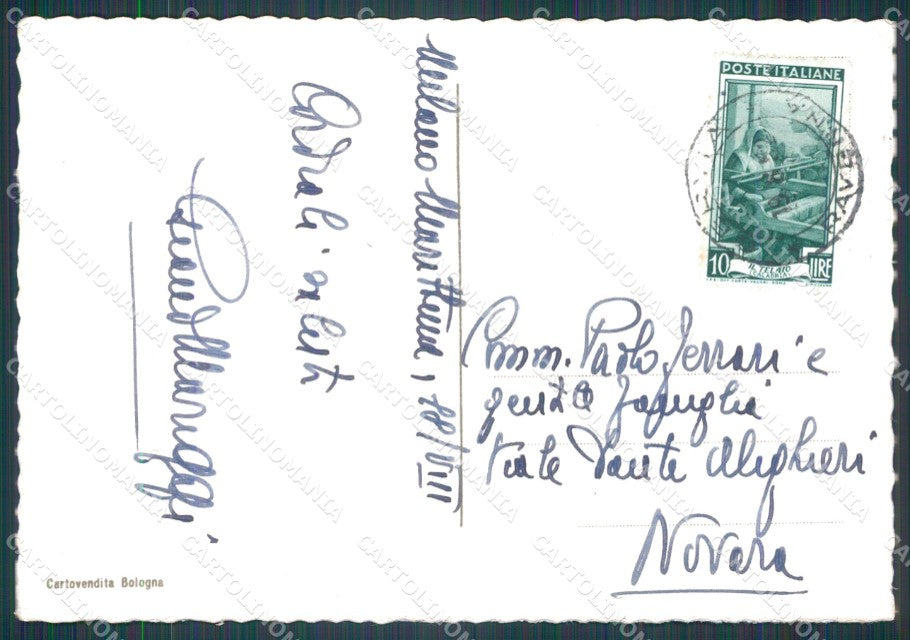 Milano Marittima, 18/VIII
Cordiali saluti
POSTE ITALIANE
10 LIRE
IL TELAIO
(CALABRIA)
RAVENNA
Comm. Paolo Ferrari e
gent.le famiglia
Viale Dante Alighieri
Novara
Cartovendita Bologna
CARTOLINOMANIA